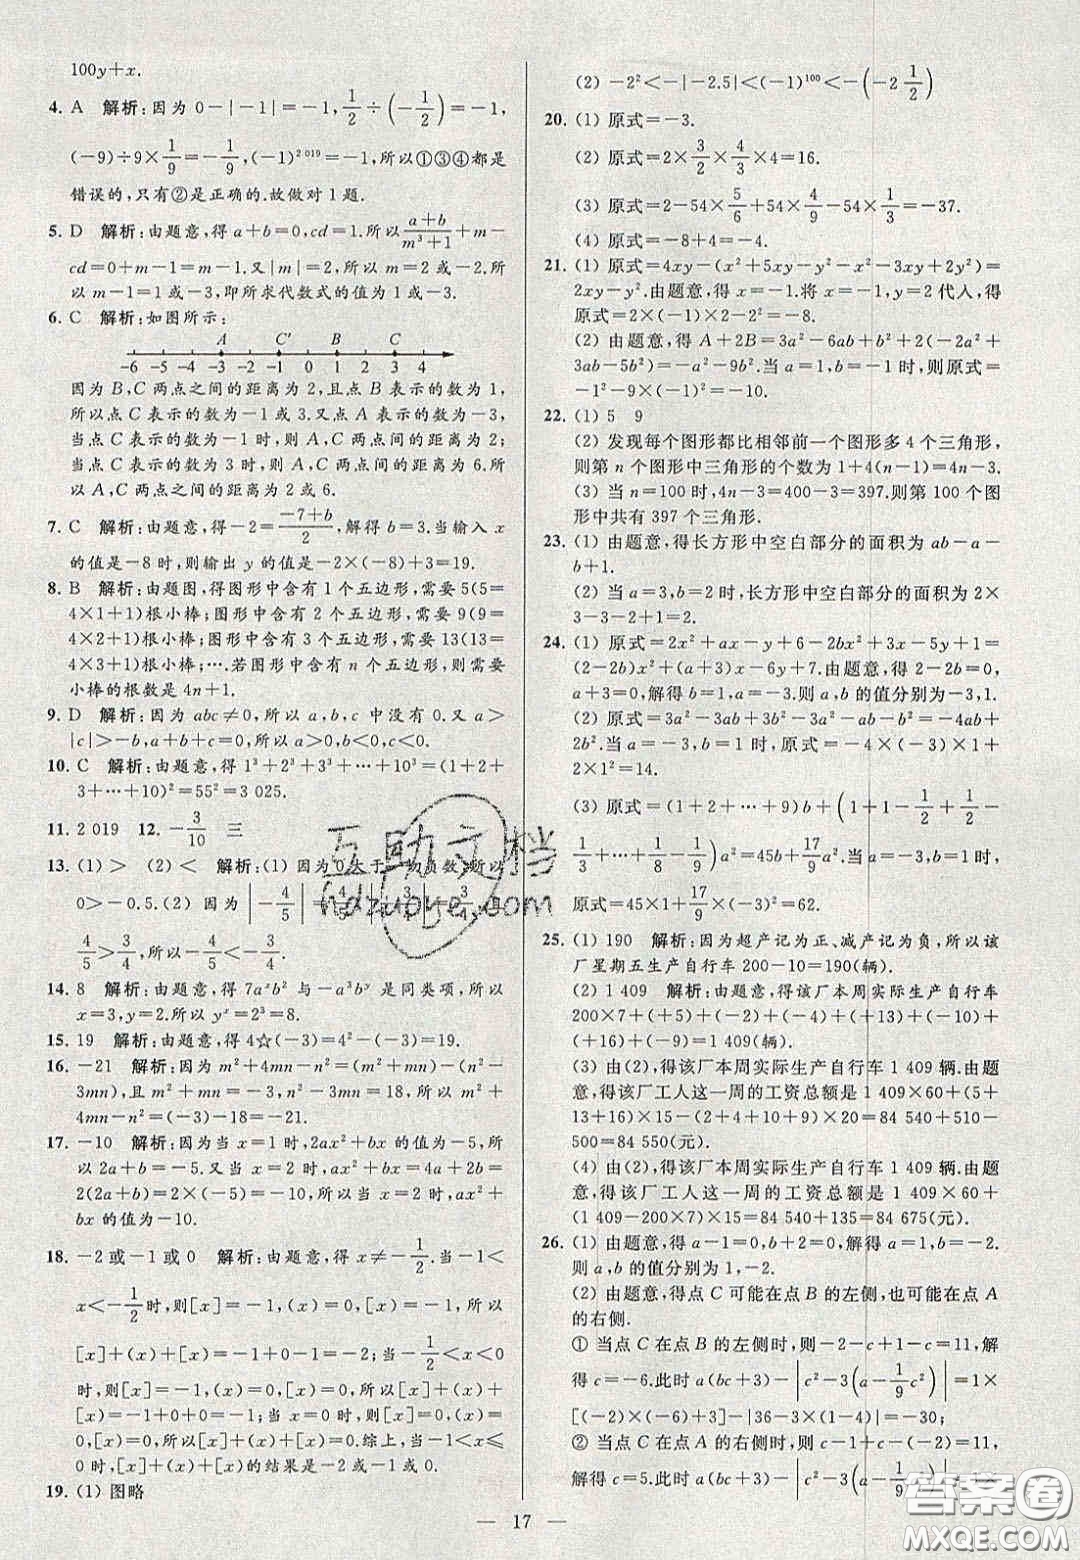 100y+x.
4. A 解析:因为 0-|-1|=-1, 1/2÷(-1/2)=-1,
(-9)÷9×1/9=-1/9,(-1)^2 019=-1,所以①③④都是
错误的,只有②是正确的.故做对 1 题.
5. D 解析:由题意,得 a+b=0,cd=1.所以 (a+b)/(m³+1)+m-
cd=0+m-1=m-1.又 |m|=2,所以 m=2 或-2,所
以 m-1=1 或-3,即所求代数式的值为 1 或-3.
6. C 解析:如图所示:
A C′ B C
-6 -5 -4 -3 -2 -1 0 1 2 3 4
因为 B,C 两点之间的距离为 2,且点 B 表示的数为 1,
所以点 C 表示的数为-1 或 3.又点 A 表示的数为-3,
当点 C 表示的数为-1 时,则 A,C 两点间的距离为 2;
当点 C 表示的数为 3 时,则 A,C 两点间的距离为 6.所
以 A,C 两点之间的距离为 2 或 6.
7. C 解析:由题意,得-2=(-7+b)/2,解得 b=3.当输入 x
的值是-8 时,则输出 y 的值是-2×(-8)+3=19.
8. B 解析:由题图,得图形中含有 1 个五边形,需要 5(5=
4×1+1)根小棒;图形中含有 2 个五边形,需要 9(9=
4×2+1)根小棒;图形中含有 3 个五边形,需要 13(13=
4×3+1)根小棒;….若图形中含有 n 个五边形,则需要
小棒的根数是 4n+1.
9. D 解析:因为 abc≠0,所以 a,b,c 中没有 0.又 a>
|c|>-b,a+b+c=0,所以 a>0,b<0,c<0.
10. C 解析:由题意,得 1³+2³+3³+…+10³=(1+2+
3+…+10)²=55²=3 025.
11. 2 019 12. -3/10 三
13. (1) > (2) < 解析:(1) 因为 0 大于一切负数,所以
0>-0.5.(2) 因为 |-4/5|=4/5,|-3/4|=3/4,
4/5>3/4,所以-4/5<-3/4.
14. 8 解析:由题意,得 7aˣb² 与-a³bʸ 是同类项,所以
x=3,y=2.所以 yˣ=2³=8.
15. 19 解析:由题意,得 4☆(-3)=4²-(-3)=19.
16. -21 解析:m²+4mn-n²=(m²+mn)-(n²-
3mn),且 m²+mn=-3,n²-3mn=18,所以 m²+
4mn-n²=(-3)-18=-21.
17. -10 解析:因为当 x=1 时,2ax²+bx 的值为-5,所
以 2a+b=-5.又当 x=2 时,ax²+bx=4a+2b=
2(2a+b)=2×(-5)=-10,所以当 x=2 时,ax²+
bx 的值为-10.
18. -2 或-1 或 0 解析:由题意,得 x≠-1/2.当-1<
x<-1/2时,则[x]=-1,(x)=0,[x)=-1,所以
[x]+(x)+[x)=-1+0-1=-2;当-1/2<x<0
时,则[x]=-1,(x)=0,[x)=0,所以[x]+(x)+
[x)=-1+0+0=-1;当 x=0 时,则[x]=0,(x)=
0,[x)=0,所以[x]+(x)+[x)=0.综上,当-1<x≤
0 时,[x]+(x)+[x)的结果是-2 或-1 或 0.
19. (1) 图略
(2) -2²<-|-2.5|<(-1)^100<-(-2 1/2)
20. (1) 原式=-3.
(2) 原式=2×3/2×4/3×4=16.
(3) 原式=2-54×5/6+54×4/9-54×1/3=-37.
(4) 原式=-8+4=-4.
21. (1) 原式=4xy-(x²+5xy-y²-x²-3xy+2y²)=
2xy-y².由题意,得 x=-1.将 x=-1,y=2 代入,得
原式=2×(-1)×2-2²=-8.
(2) 由题意,得 A+2B=3a²-6ab+b²+2(-2a²+
3ab-5b²)=-a²-9b².当 a=1,b=-1 时,则原式=
-1²-9×(-1)²=-10.
22. (1) 5 9
(2) 发现每个图形都比相邻前一个图形多 4 个三角形,
则第 n 个图形中三角形的个数为 1+4(n-1)=4n-3.
(3) 当 n=100 时,4n-3=400-3=397.则第 100 个图
形中共有 397 个三角形.
23. (1) 由题意,得长方形中空白部分的面积为 ab-a-
b+1.
(2) 当 a=3,b=2 时,长方形中空白部分的面积为 2×
3-3-2+1=2.
24. (1) 原式=2x²+ax-y+6-2bx²+3x-5y+1=
(2-2b)x²+(a+3)x-6y+7.由题意,得 2-2b=0,
a+3=0,解得 b=1,a=-3.则 a,b 的值分别为-3,1.
(2) 原式=3a²-3ab+3b²-3a²-ab-b²=-4ab+
2b².当 a=-3,b=1 时,原式=-4×(-3)×1+
2×1²=14.
(3) 原式=(1+2+…+9)b+(1+1-1/2+1/2-
1/3+…+1/8-1/9)a²=45b+17/9a².当 a=-3,b=1 时,
原式=45×1+17/9×(-3)²=62.
25. (1) 190 解析:因为超产记为正、减产记为负,所以该
厂星期五生产自行车 200-10=190(辆).
(2) 1 409 解析:由题意,得该厂本周实际生产自行车
200×7+(+5)+(-2)+(-4)+(+13)+(-10)+
(+16)+(-9)=1 409(辆).
(3) 由(2),得该厂本周实际生产自行车 1 409 辆.由题
意,得该厂工人这一周的工资总额是 1 409×60+(5+
13+16)×15-(2+4+10+9)×20=84 540+510-
500=84 550(元).
(4) 由(2),得该厂本周实际生产自行车 1 409 辆.由题
意,得该厂工人这一周的工资总额是 1 409×60+
(1 409-200×7)×15=84 540+135=84 675(元).
26. (1) 由题意,得 a-1=0,b+2=0,解得 a=1,b=-2.
则 a,b 的值分别为 1,-2.
(2) 由题意,得点 C 可能在点 B 的左侧,也可能在点 A
的右侧.
① 当点 C 在点 B 的左侧时,则-2-c+1-c=11,解
得 c=-6.此时 a(bc+3)-|c²-3(a-1/9c²)|=1×
[(-2)×(-6)+3]-|36-3×(1-4)|=-30;
② 当点 C 在点 A 的右侧时,则 c-1+c-(-2)=11,
解得 c=5.此时 a(bc+3)-|c²-3(a-1/9c²)|=
17
互助文档
hdzuoye.com
答案圈
MXQE.COM